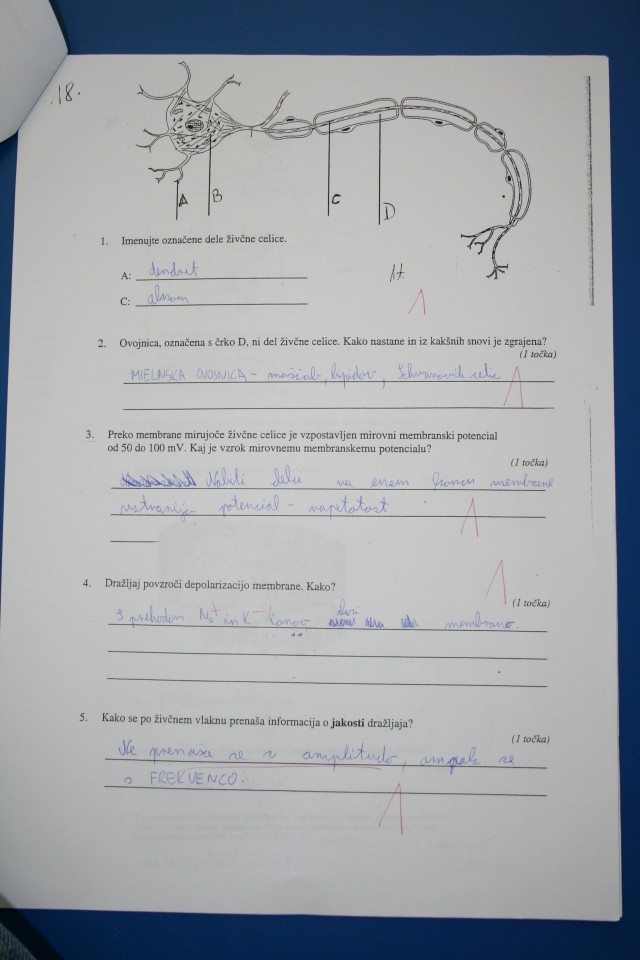 18.
A
B
C
D
1. Imenujte označene dele živčne celice.
A: dendrit
C: akson
1t
1
2. Ovojnica, označena s črko D, ni del živčne celice. Kako nastane in iz kakšnih snovi je zgrajena?
(1 točka)
MIELINSKA OVOJNICA - maščob, lipidov, Schwanovih celic
1
3. Preko membrane mirujoče živčne celice je vzpostavljen mirovni membranski potencial
od 50 do 100 mV. Kaj je vzrok mirovnemu membranskemu potencialu?
(1 točka)
Nabiti delci na enem koncu membrane
ustvarijo potencial - napetost.
1
4. Dražljaj povzroči depolarizacijo membrane. Kako?
1
(1 točka)
S prehodom Na+ in K membrano.
5. Kako se po živčnem vlaknu prenaša informacija o jakosti dražljaja?
(1 točka)
Ne prenaša se z amplitudo, ampak se
s FREKVENCO.
1